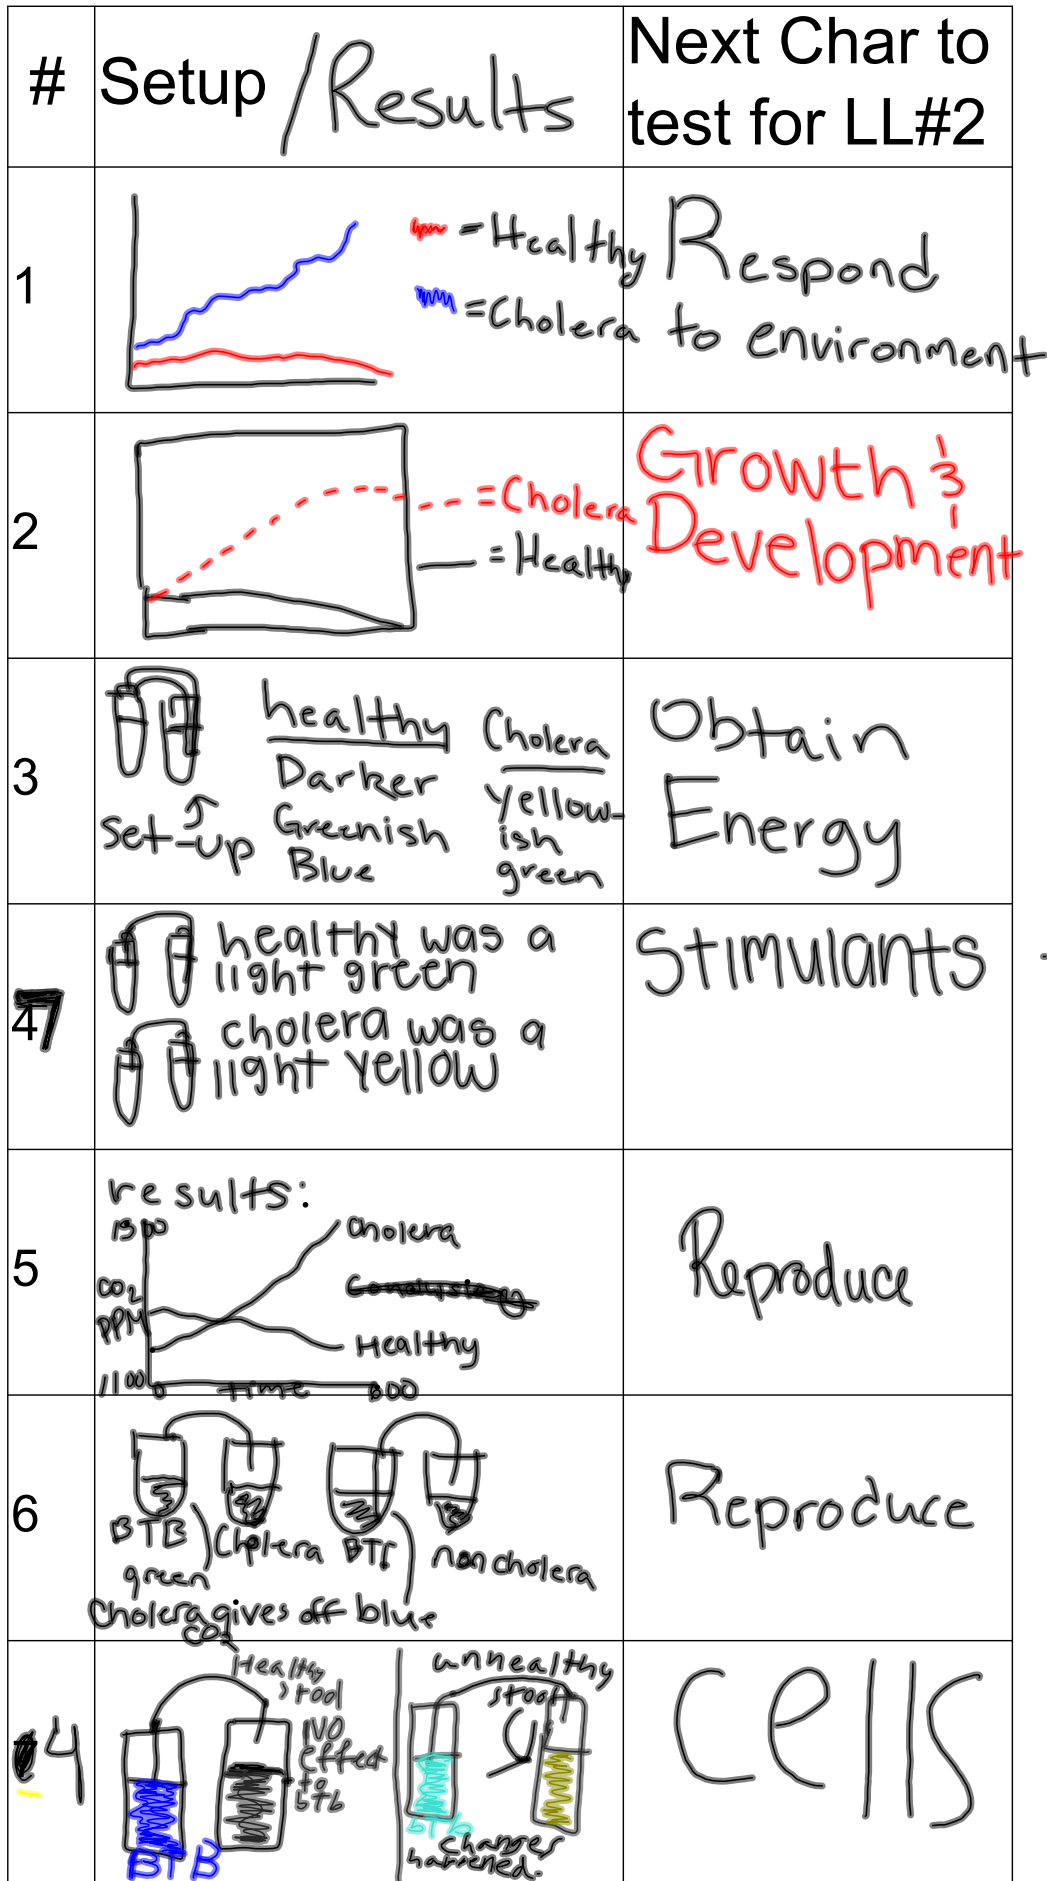 # Setup /Results Next Char to
test for LL#2
1
=Healthy
=Cholera
Respond
to environment
2
=Cholera
=Healthy
Growth &
Development
3
Set-up
healthy
Darker
Greenish
Blue
Cholera
Yellow-
ish
green
Obtain
Energy
7
healthy was a
light green
cholera was a
light yellow
Stimulants
5
results:
1300
CO2
PPM
1100
0 time 600
Cholera
Healthy
Reproduce
6
BTB
green
Cholera
noncholera
Cholera gives off blue
CO2
Reproduce
4
Healthy
stool
NO
effect
to
btb
BTB
unhealthy
stool
btb
changes
happened.
cells